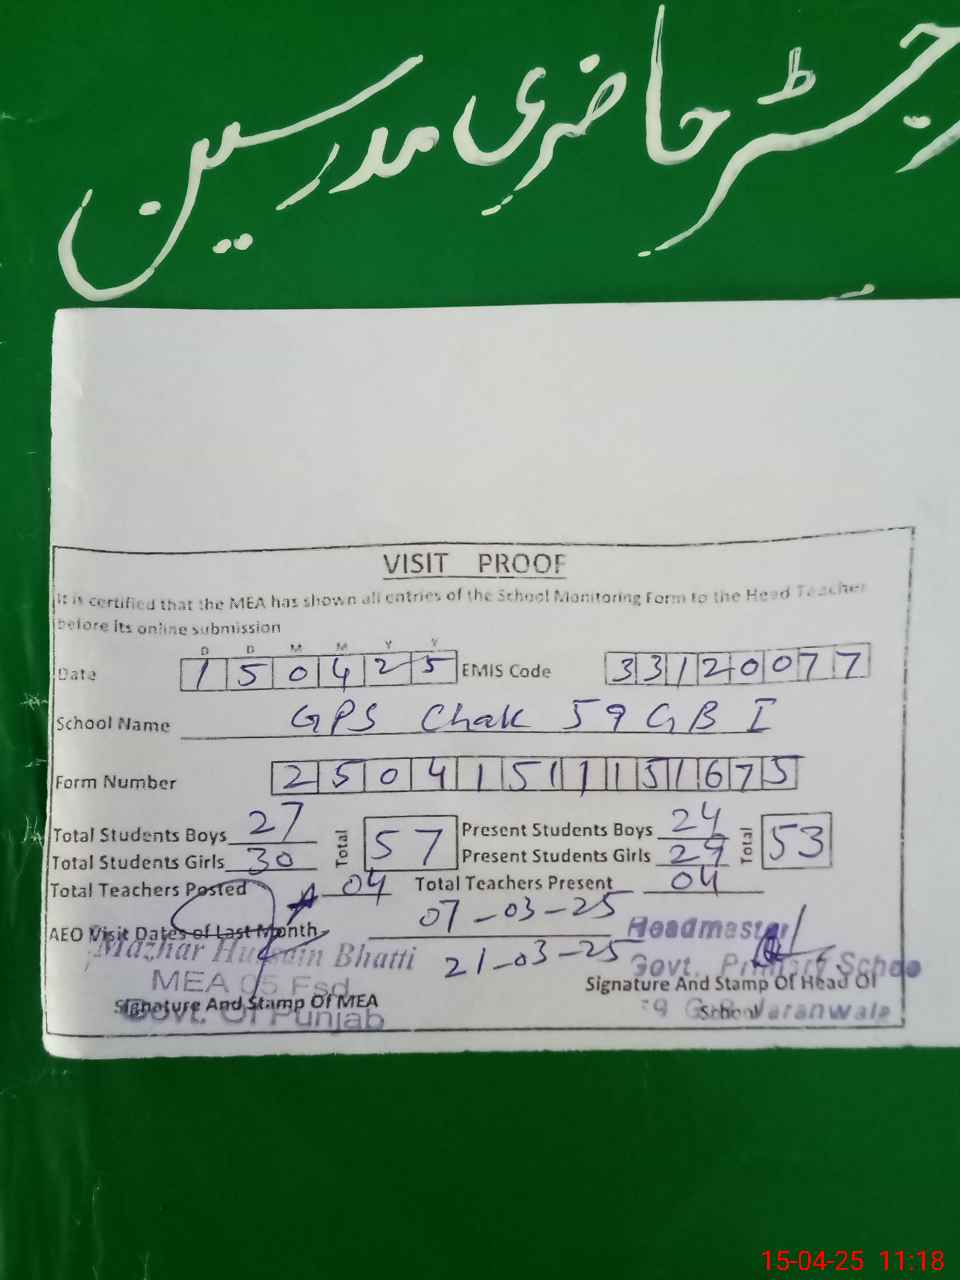 رجسٹر حاضری مدرسین
VISIT PROOF
It is certified that the MEA has shown all entries of the School Monitoring Form to the Head Teacher
before its online submission
D D M M Y Y
Date 150425 EMIS Code 33120077
School Name GPS Chak 59 GB I
Form Number 25041511151675
Total Students Boys 27 Total 57 Present Students Boys 24 Total 53
Total Students Girls 30 Present Students Girls 29
Total Teachers Posted 04 Total Teachers Present 04
AEO Visit Dates of Last Month 07-03-25
21-03-25
Mazhar Hussain Bhatti
MEA 05 Fsd
Govt. Of Punjab
Signature And Stamp Of MEA
Headmaster
Govt. Primary School
59 G.B Jaranwala
Signature And Stamp Of Head Of
School
15-04-25 11:18